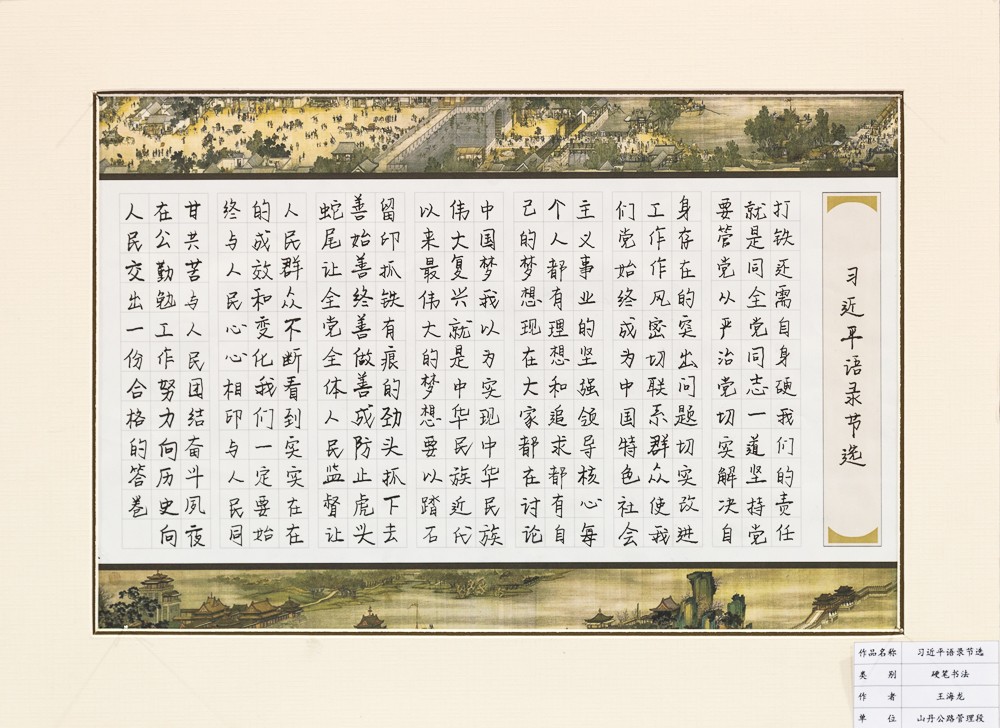 习近平语录节选
打铁还需自身硬我们的责任
就是同全党同志一道坚持党
要管党从严治党切实解决自
身存在的突出问题切实改进
工作作风密切联系群众使我
们党始终成为中国特色社会
主义事业的坚强领导核心每
个人都有理想和追求都有自
己的梦想现在大家都在讨论
中国梦我以为实现中华民族
伟大复兴就是中华民族近代
以来最伟大的梦想要以踏石
留印抓铁有痕的劲头抓下去
善始善终善做善成防止虎头
蛇尾让全党全体人民监督让
人民群众不断看到实实在在
的成效和变化我们一定要始
终与人民心心相印与人民同
甘共苦与人民团结奋斗夙夜
在公勤勉工作努力向历史向
人民交出一份合格的答卷
作品名称 习近平语录节选
类 别 硬笔书法
作 者 王海龙
单 位 山丹公路管理段